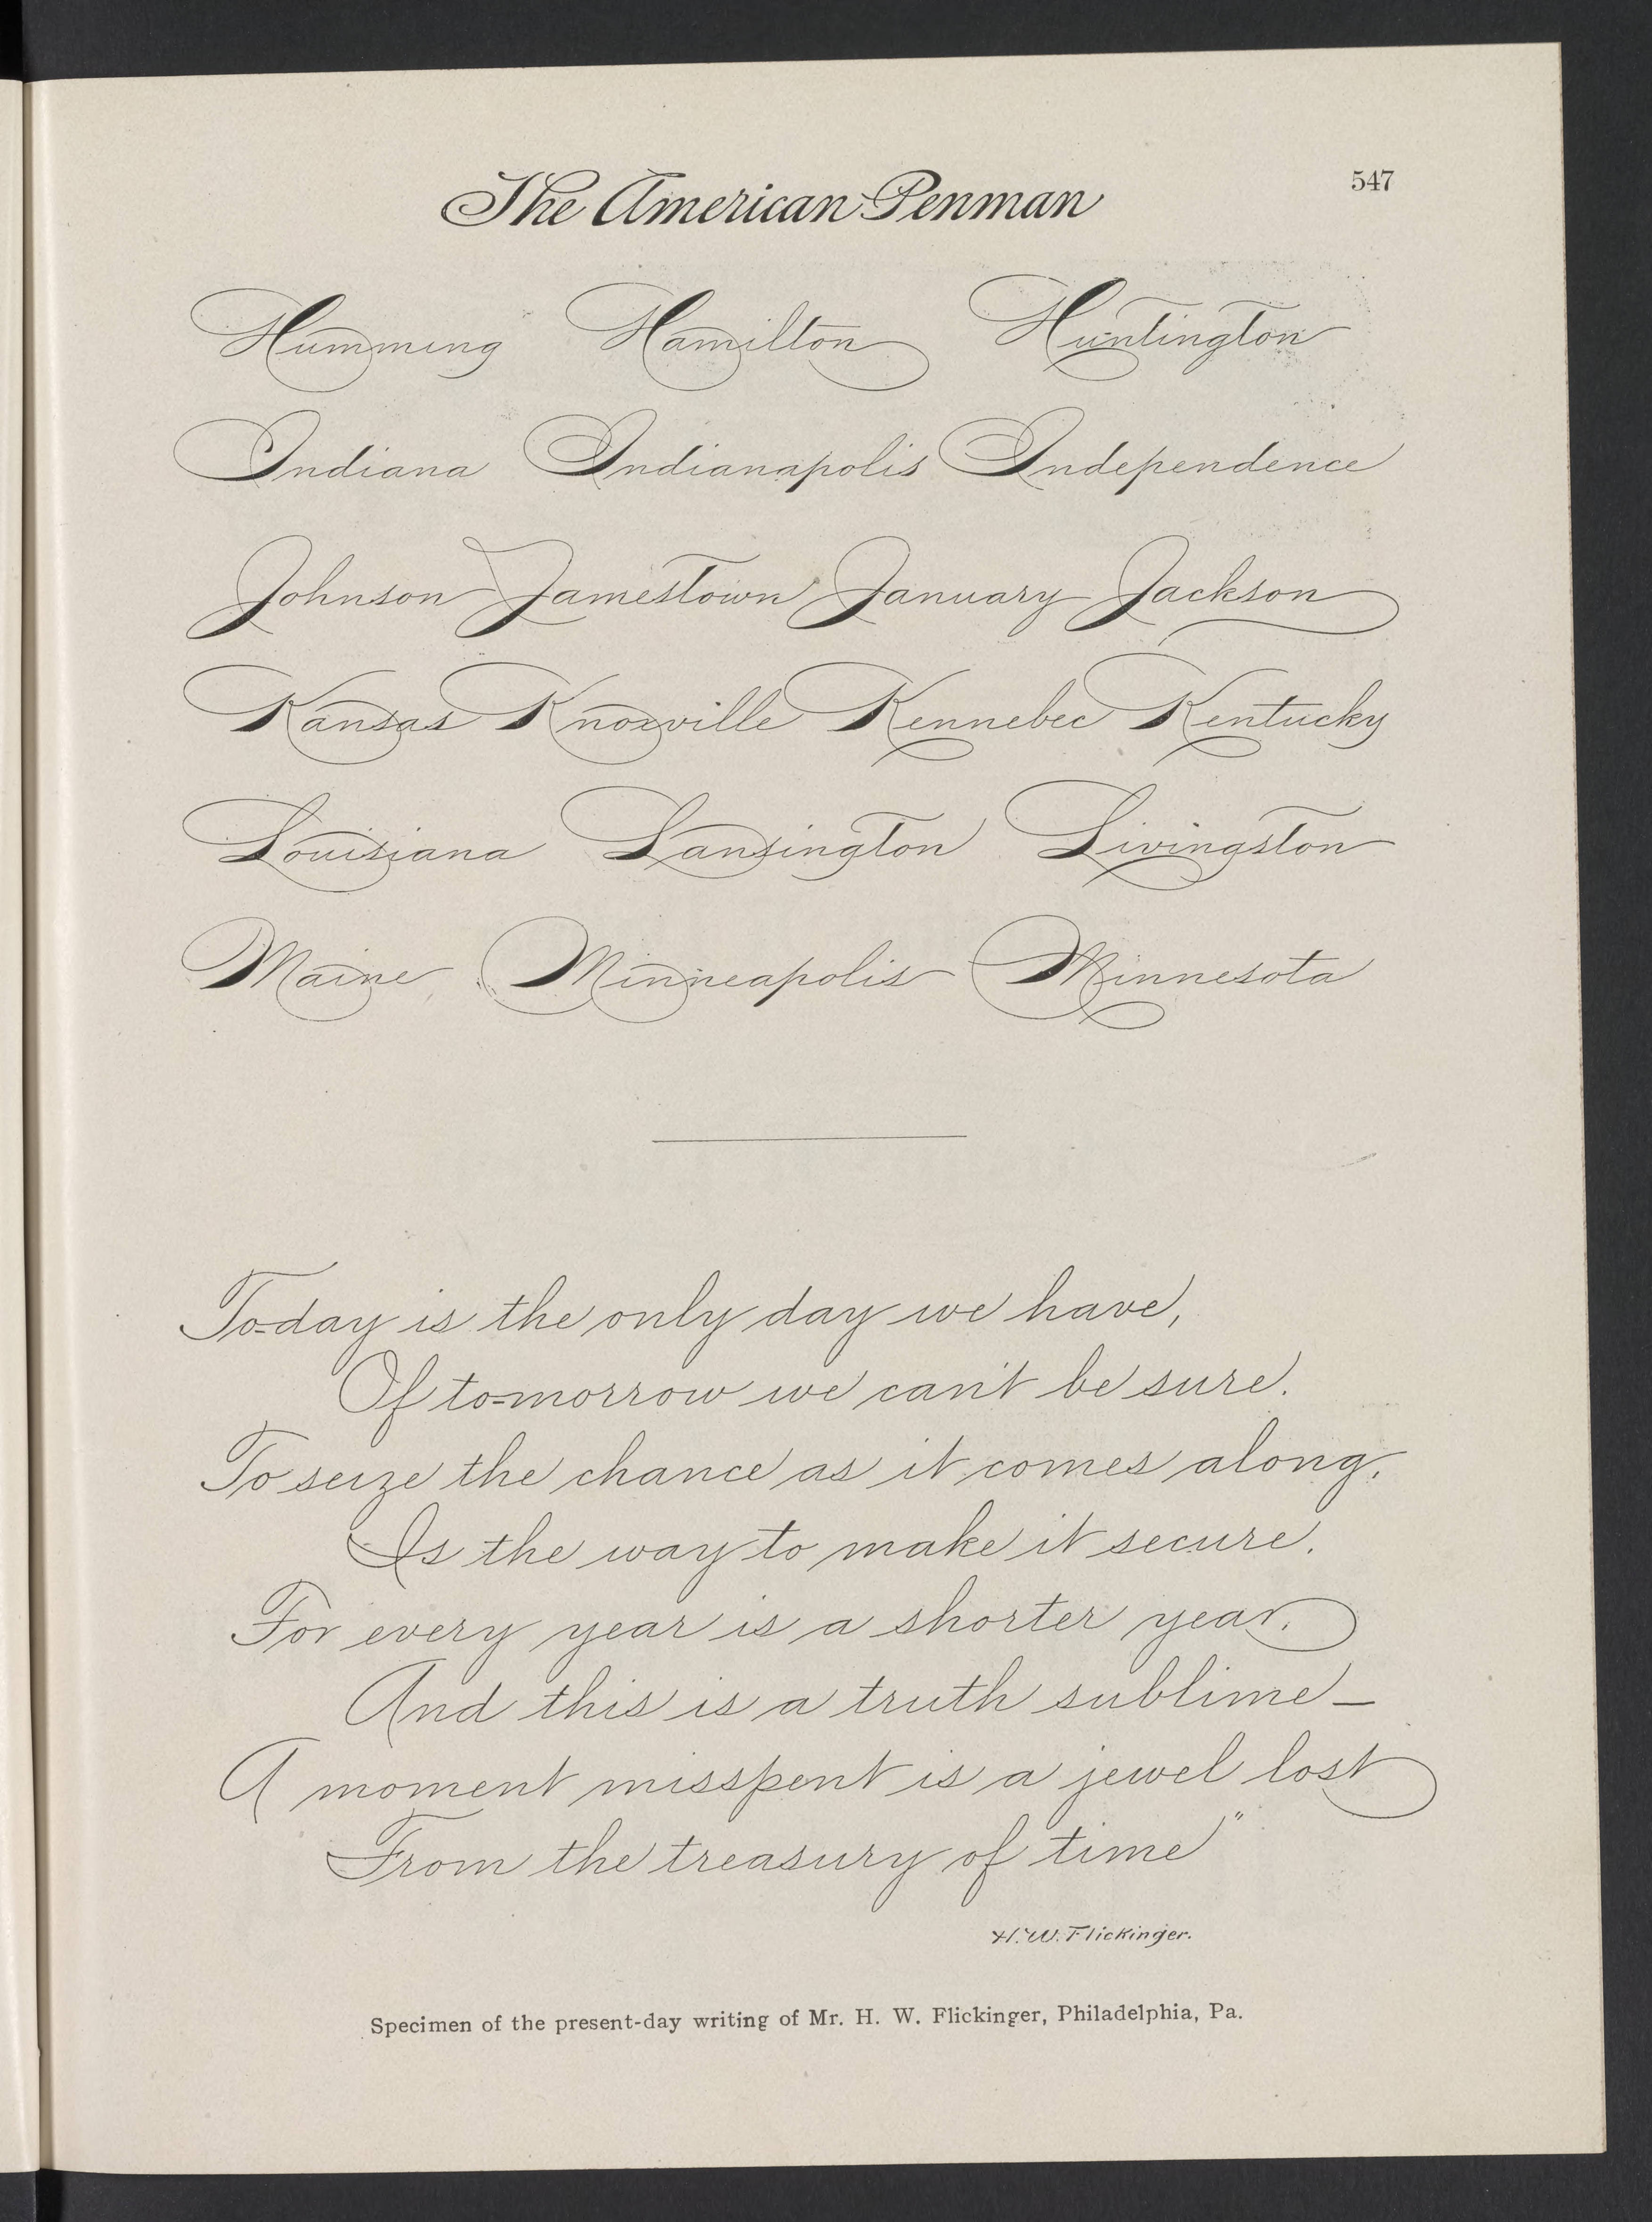 The American Penman
547
Humming Hamilton Huntington
Indiana Indianapolis Independence
Johnson Jamestown January Jackson
Kansas Knoxville Kennebec Kentucky
Louisiana Lansington Livingston
Maine Minneapolis Minnesota
To-day is the only day we have,
Of to-morrow we can't be sure.
To seize the chance as it comes along,
Is the way to make it secure.
For every year is a shorter year,
And this is a truth sublime—
A moment misspent is a jewel lost
From the treasury of time"
H. W. Flickinger.
Specimen of the present-day writing of Mr. H. W. Flickinger, Philadelphia, Pa.